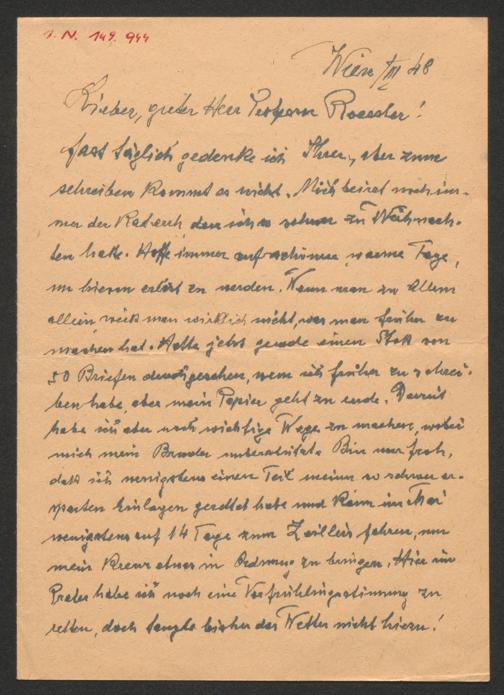 I. N. 149.944
Wien, III 48
Lieber, guter Herr Professor Roessler!
fast täglich gedenke ich Ihrer, aber zum
schreiben kommt es nicht. Mich beirrt noch im-
mer der Katarrh, den ich schon zu Weihnach-
ten hatte. Hoffe immer auf schöne, warme Tage,
um diesen erlöst zu werden. Wenn man zu Allem
allein, weiß man wirklich nicht, was man früher zu
machen hat. Hatte jetzt gerade einen Stoß von
50 Briefen durchgesehen, wem ich früher zu schrei-
ben habe, aber mein Papier geht zu ende. Derzeit
habe ich aber noch wichtige Wege zu machen, wobei
mich mein Bruder unterstützt. Bin nur froh,
daß ich wenigstens einen Teil meiner so schwer er-
sparten Einlagen gerettet habe und kann im Mai
wenigstens auf 14 Tage zum Zeilleis fahren, um
mein Kreuz etwas in Ordnung zu bringen. Hier im
Prater habe ich noch eine Vorfrühlingsstimmung zu
retten, doch langte bisher das Wetter nicht hiezu!